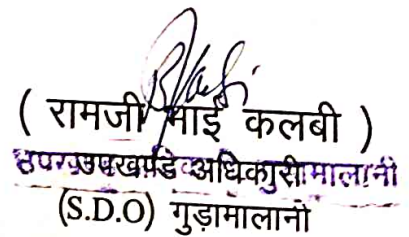 ( रामजी भाई कलबी )
उपखण्ड अधिकारी
(S.D.O) गुड़ामालानी